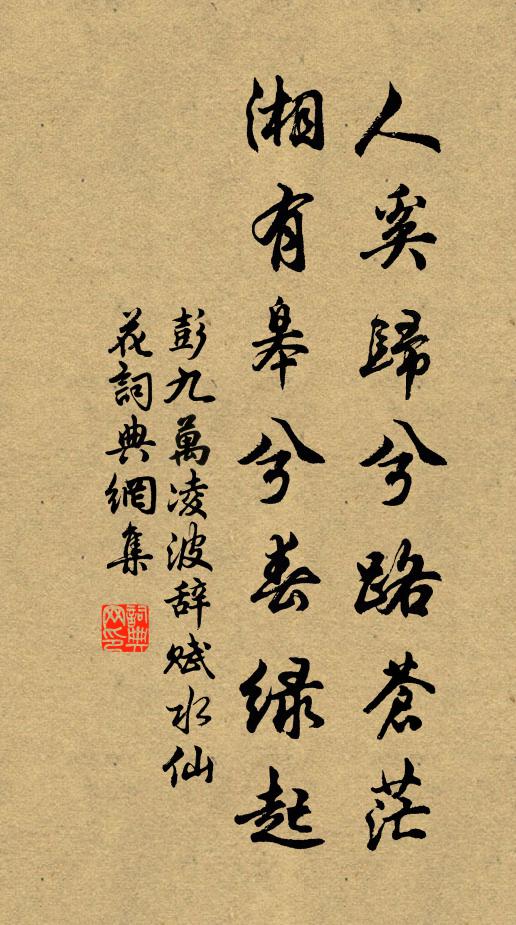 人奚歸兮路蒼茫
湘有皋兮春绿起
彭九萬凌波辞赋水仙
花詞典網集
詞典
网印